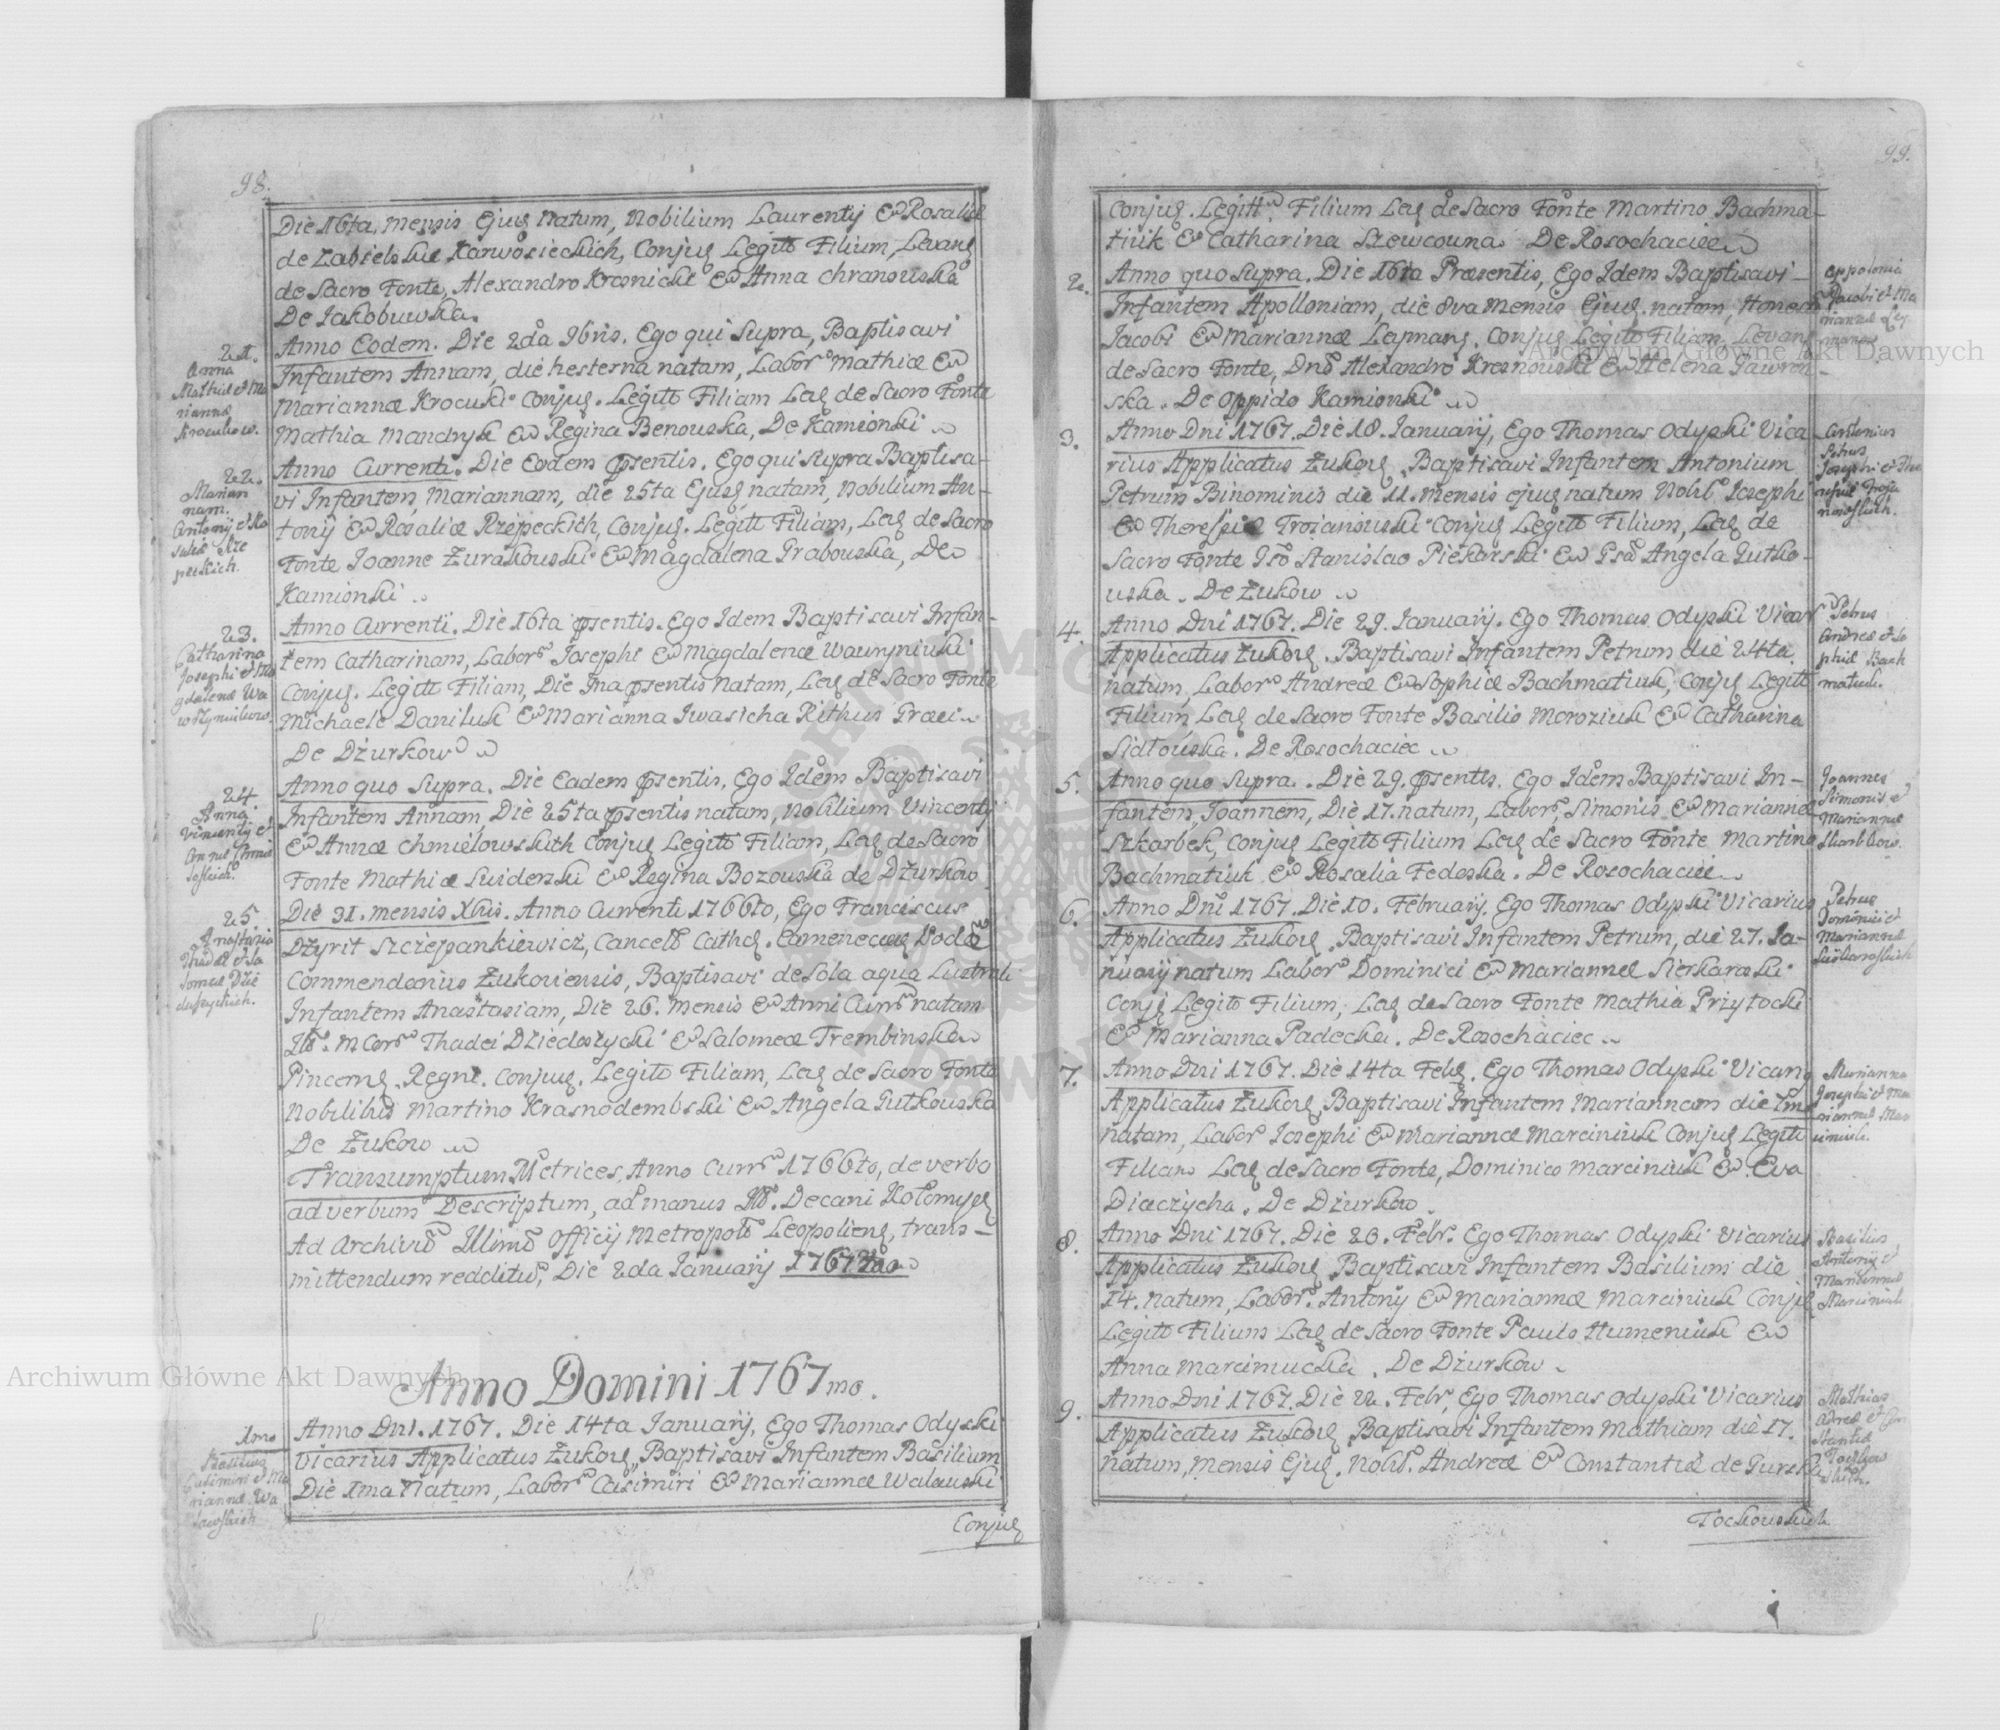 98.
Die 16ta, mensis Ejus natum, Nobilium Laurentij & Rosaliæ
de Zabielskie Karwosieckich, Conjug Legitt Filium, Levang
de Sacro Fonte, Alexandro Krasnicki & Anna Chranouska
De Jakobuwska.
21.
Anna
Mathiæ et Ma
riannæ
Krocukow.
Anno Eodem. Die 2da 9bris. Ego qui Supra, Baptisavi
Infantem Annam, die hesterna natam, Labor Mathiæ &
Mariannæ Krocuki Conjug. Legitt Filiam Lag de Sacro Fonte
Mathia Mandryk & Regina Benouska, De Kamionki
22.
Marian
nam.
Antonij et Ro
saliæ Rze
peckich.
Anno Currenti. Die Eadem psentis. Ego qui Supra Baptisa-
vi Infantem, Mariannam, die 25ta Ejusq natam, Nobilium An-
tonij & Rosaliæ Rzepeckich, Conjug. Legitt Filiam, Lag de Sacro
Fonte Joanne Zurakouski & Magdalena Grabouska, De
Kamionki
23.
Catharina
Josephi et Ma
gdalenæ Wa
wryniukow.
Anno Currenti. Die 16ta psentis. Ego Idem Baptisavi Infan-
tem Catharinam, Labor Josephi & Magdalenæ Wawryniuki
Conjug. Legitt Filiam, Die Ima psentis natam, Lag de Sacro Fonte
Michaele Daniluk & Marianna Iwasicha Rithus Græci
De Dzurkow
24.
Anna
Vincentij et
Annæ Chmie
loskich.
Anno quo Supra. Die Eadem psentis. Ego Idem Baptisavi
Infantem Annam, Die 25ta psentis natam, Nobilium Vincentij
& Annæ Chmielowskich Conjug Legitt Filiam, Lag de Sacro
Fonte Mathia Suiderski & Regina Bozouska de Dzurkow
25
Anastasia
Thadæi et Sa
lomeæ Dzie
duszyckich.
Die 31. mensis Xbris. Anno Currenti 1766to, Ego Franciscus
Dzyrit Szczepankiewicz, Cancell Cathed. Cameneceng Podol
Commendarius Zukoviensis, Baptisavi de Sola aqua Lustrali
Infantem Anastasiam, Die 26. mensis & Anni Curr natam
Ill. M Cor Thadei Dziedoszycki & Salomeæ Trembinska
Pincerng. Regni. Conjug. Legitt Filiam, Lag de Sacro Fonte
Nobilibus Martino Krasnodembski & Angela Gutkouska
De Zukow
Transumptum Metrices, Anno Curr 1766to, de verbo
ad verbum Descriptum, ad manus Decani Kołomyeg
Ad Archivum Officij Metropol Leopolieng, trans-
mittendum redditus, Die 2da Januarij 1767mo
Anno Domini 1767mo.
1mo
Basilius
Casimiri et Ma
riannæ Wa
lawskich
Anno Dni. 1767. Die 14ta Januarij, Ego Thomas Odyski
Vicarius Applicatus Zukov, Baptisavi Infantem Basilium
Die 1ma Natum, Labor Casimiri & Mariannæ Walauski
Conjug
99.
Conjug. Legitt Filium Lag de Sacro Fonte Martino Bachma-
tiuk & Catharina Szewcouna De Rosochaciec
2.
Anno quo Supra. Die 16ta Præsentis, Ego Idem Baptisavi
Infantem Apolloniam, die 8va Mensis Ejus. natam, Honest
Jacobi & Mariannæ Lapmang. Conjug Legitt Filiam, Levang
de Sacro Fonte, Dno Alexandro Krasnouski & Helena Gawron-
ska. De Oppido Kamionki
Appolonia
Jacobi et Ma
riannæ
3.
Anno Dni 1767. Die 18. Januarij, Ego Thomas Odyski Vica
rius Applicatus Zukov. Baptisavi Infantem Antonium
Petrum Binominis die 11. Mensis ejus natum Nobil Josephi
& Theresiæ Troianouski Conjug Legitt Filium, Lag de
Sacro Fonte Gso Stanislao Piekarski & Gsa Angela Gutko-
uska. De Zukow
Antonius
Petrus
Josephi et The
resiæ Troja
nowskich.
4.
Anno Dni 1767. Die 29. Januarij. Ego Thomas Odyski Vicar
Applicatus Zukov. Baptisavi Infantem Petrum die 24ta
natum, Labor Andreæ & Sophiæ Bachmatiuk, Conjug Legitt
Filium, Lag de Sacro Fonte Basilio Moroziuk & Catharina
Sidłouska. De Rosochaciec
Petrus
Andreæ et So
phiæ Bach
matiuk.
5.
Anno quo Supra. Die 29. psentis. Ego Idem Baptisavi In-
fantem, Joannem, Die 17. natum, Labor, Simonis & Mariannæ
Szkarbek, Conjug Legitt Filium Lag de Sacro Fonte Martino
Bachmatiuk & Rosalia Fedoska. De Rosochaciec
Joannes
Simonis et
Mariannæ
Skarbkow.
6.
Anno Dni 1767. Die 10. Februarij. Ego Thomas Odyski Vicarius
Applicatus Zukov. Baptisavi Infantem Petrum, die 27. Ja-
nuarij natum Labor Dominici & Mariannæ Siekaroski
Conjg Legitt Filium, Lag de Sacro Fonte Mathia Przytocki
& Marianna Padecka. De Rosochaciec
Petrus
Dominici et
Mariannæ
Siekaroskich
7.
Anno Dni 1767. Die 14ta Febr. Ego Thomas Odyski Vicarg
Applicatus Zukov Baptisavi Infantem Mariannam die 1ma
natam, Labor Josephi & Mariannæ Marciniuk Conjug Legitt
Filiam Lag de Sacro Fonte, Dominico Marciniuk & Eva
Diaczycha. De Dzurkow.
Marianna
Josephi et Ma
riannæ Mar
ciniuk.
8.
Anno Dni 1767. Die 20. Febr. Ego Thomas Odyski Vicarius
Applicatus Zukov Baptisavi Infantem Basilium die
14. natum, Labor. Antonij & Mariannæ Marciniuk Conjg
Legitt Filium Lag de Sacro Fonte Paulo Humeniuk &
Anna Marcimucka. De Dzurkow
Basilius
Antonij et
Mariannæ
Marciniuk
9.
Anno Dni 1767. Die 22. Febr. Ego Thomas Odyski Vicarius
Applicatus Zukov Baptisavi Infantem Mathiam die 17.
natum, mensis Ejus. Nobil. Andreæ & Constantiæ de Gurskie
Mathias
Adreæ et Con
stantiæ
Tockow
skich.
Tockouskich
Archiwum Główne Akt Dawnych
Archiwum Główne Akt Dawnych